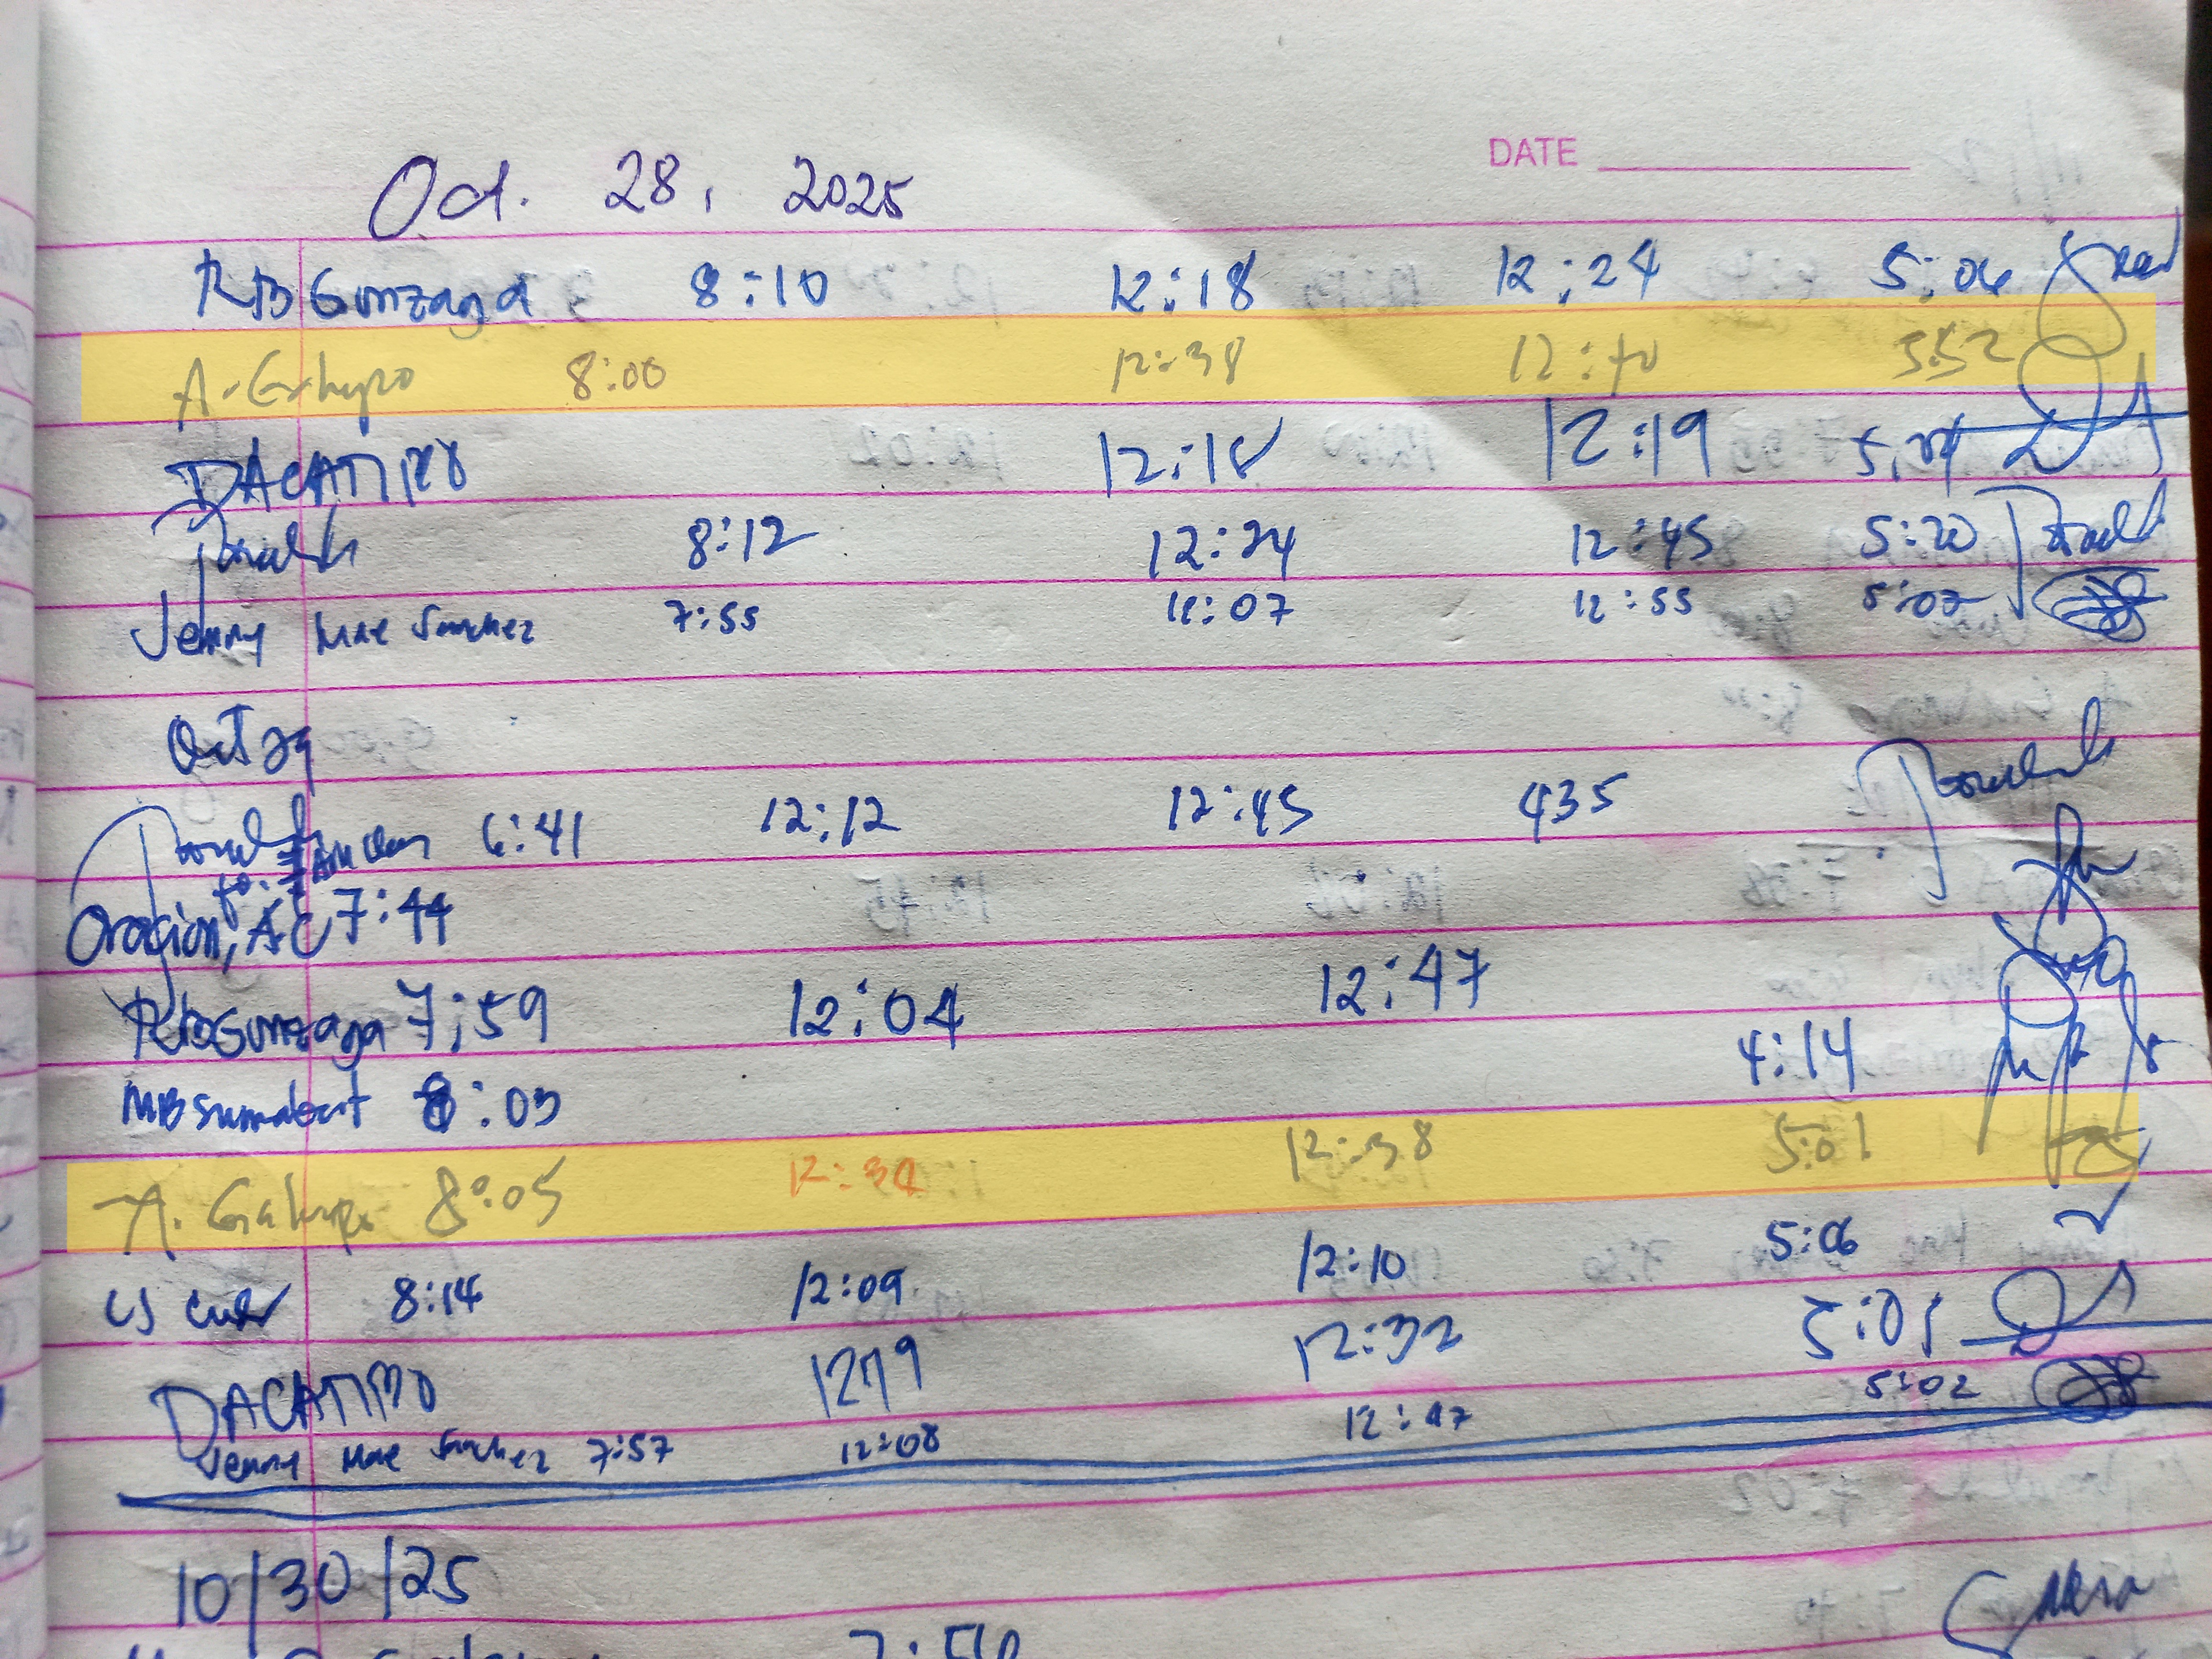 DATE
Oct. 28, 2025
RB Gonzaga 8:10 12:18 12:24 5:06
A. Galupo 8:00 12:38 12:40 5:52
DACATIMO 12:18 12:19 5:04
8:12 12:24 12:45 5:20
Jenny Mae Sanchez 7:55 12:07 12:55 5:07
Oct 29
6:41 12:12 12:45 435
Oracion, AC 7:44
RB Gonzaga 7:59 12:04 12:47
MB Sumabat 8:03 4:14
A. Galupo 8:05 12:34 12:38 5:01
CJ 8:14 12:09 12:10 5:06
DACATIMO 12:32 5:01
Jenny Mae Sanchez 7:57 12:08 12:47 5:02
10/30/25